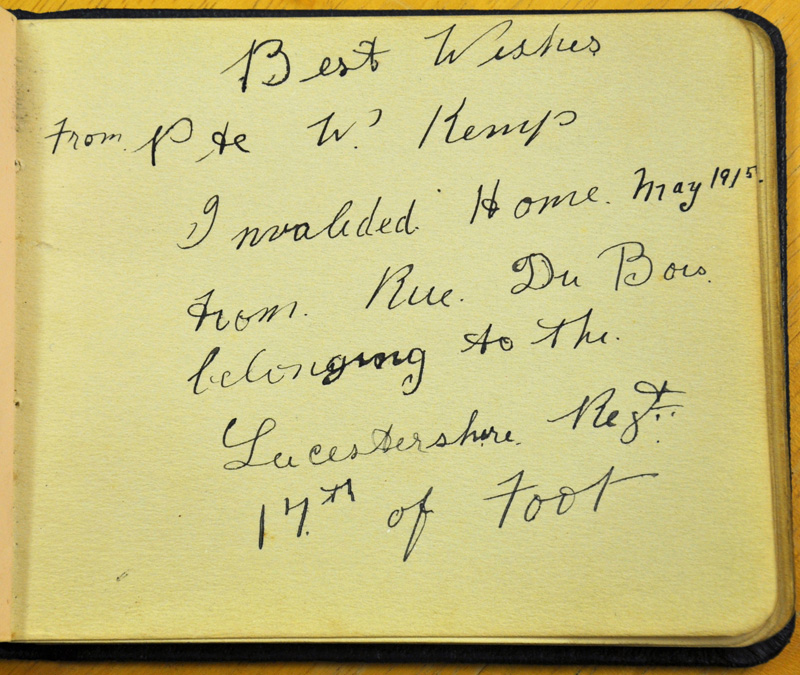 Best Wishes
From Pte W. Kemp
Invalided Home. May 1915.
from. Rue. Du Bois.
belonging to the.
Leicestershire. Regt.
17th of Foot